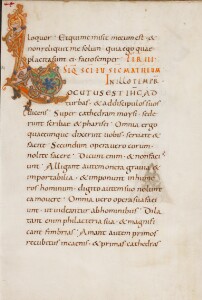 loquor. Et qui me misit mecum est. &
non reliquit me solum. quia ego quae
placita sunt ei facio semper. FER III
SEQ SCI EU SEC MATHEUM
IN ILLO TEMP
LOCUTUS EST IHC AD
turbas. & ad discipulos suos
dicens. Super cathedram moysi sede
runt scribae & pharisei. Omnia ergo
quaecunque dixerint uobis. seruate &
facite. Secundum opera uero eorum
nolite facere. Dicunt enim. & non faci
unt. Alligant autem onera grauia &
importabilia. & imponunt in umeros
hominum. digito autem suo nolunt
ea mouere. Omnia uero opera sua faci
unt. ut uideantur ab hominibus. Dila
tant enim philacteria sua. & magnifi
cant fimbrias. Amant autem primos
recubitus in cenis. & primas cathedras